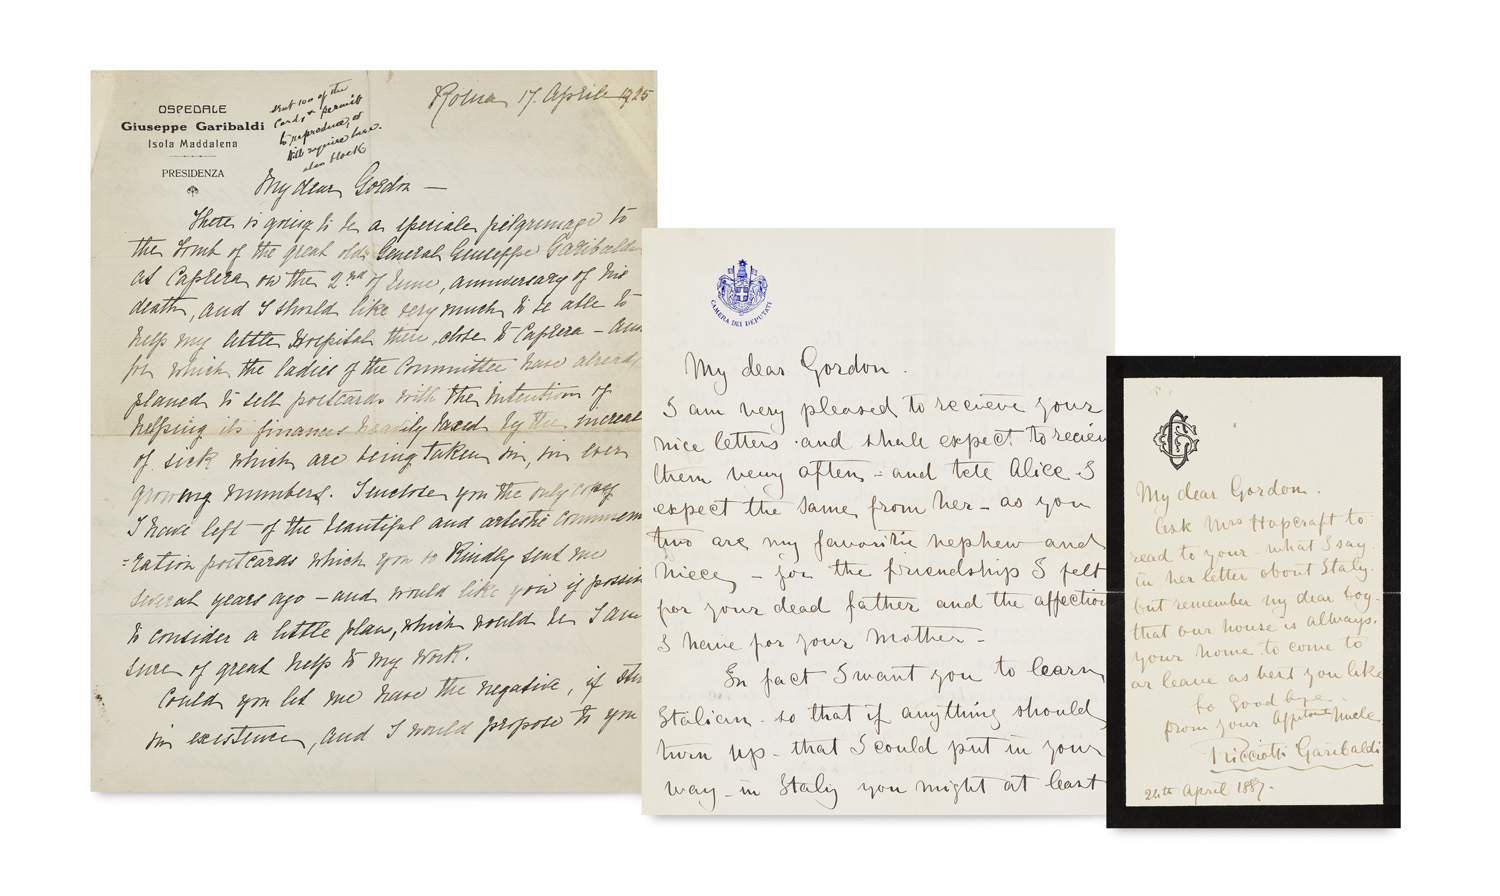 OSPEDALE
Giuseppe Garibaldi
Isola Maddalena
PRESIDENZA
sent 100 of the
Cards + permit
to reproduce, or
will require
block
Roma 17. Aprile 1925
My dear Gordon —
There is going to be a speciale pelgrimage to
the Tomb of the great old General Giuseppe Garibaldi
at Caprera on the 2nd of June, anniversary of his
death, and I should like very much to be able to
help my little Hospital there, close to Caprera – and
for which the ladies of the Committee have already
planed to sell postcards with the intention of
helping its finances heavily taxed by the increas
of sick which are being taken in, in ever
growing numbers. I enclose you the only copy
I have left of the beautiful and artistic Commem
=ration postcards which you so Kindly sent me
several years ago – and would like you if possib
to consider a little plan, which would be I am
sure of great help to my work.
Could you let me have the negative, if stil
in existence, and I would propose to you
CAMERA DEI DEPUTATI
My dear Gordon.
I am very pleased to recieve your
nice letters and shall expect to reciev
them very often – and tell Alice I
expect the same from her – as you
two are my favorite nephew and
niece – for the friendship I felt
for your dead father and the affection
I have for your mother –
In fact I want you to learn
Italian – so that if anything should
turn up – that I could put in your
way – in Italy you might at least
My dear Gordon.
Ask Mrs Hapcraft to
read to you – what I say
in her letter about Italy.
but remember my dear boy –
that our house is always.
your home to come to
or leave as best you like
So Good bye
from your Uncle
Ricciotti Garibaldi
24th April 1887.